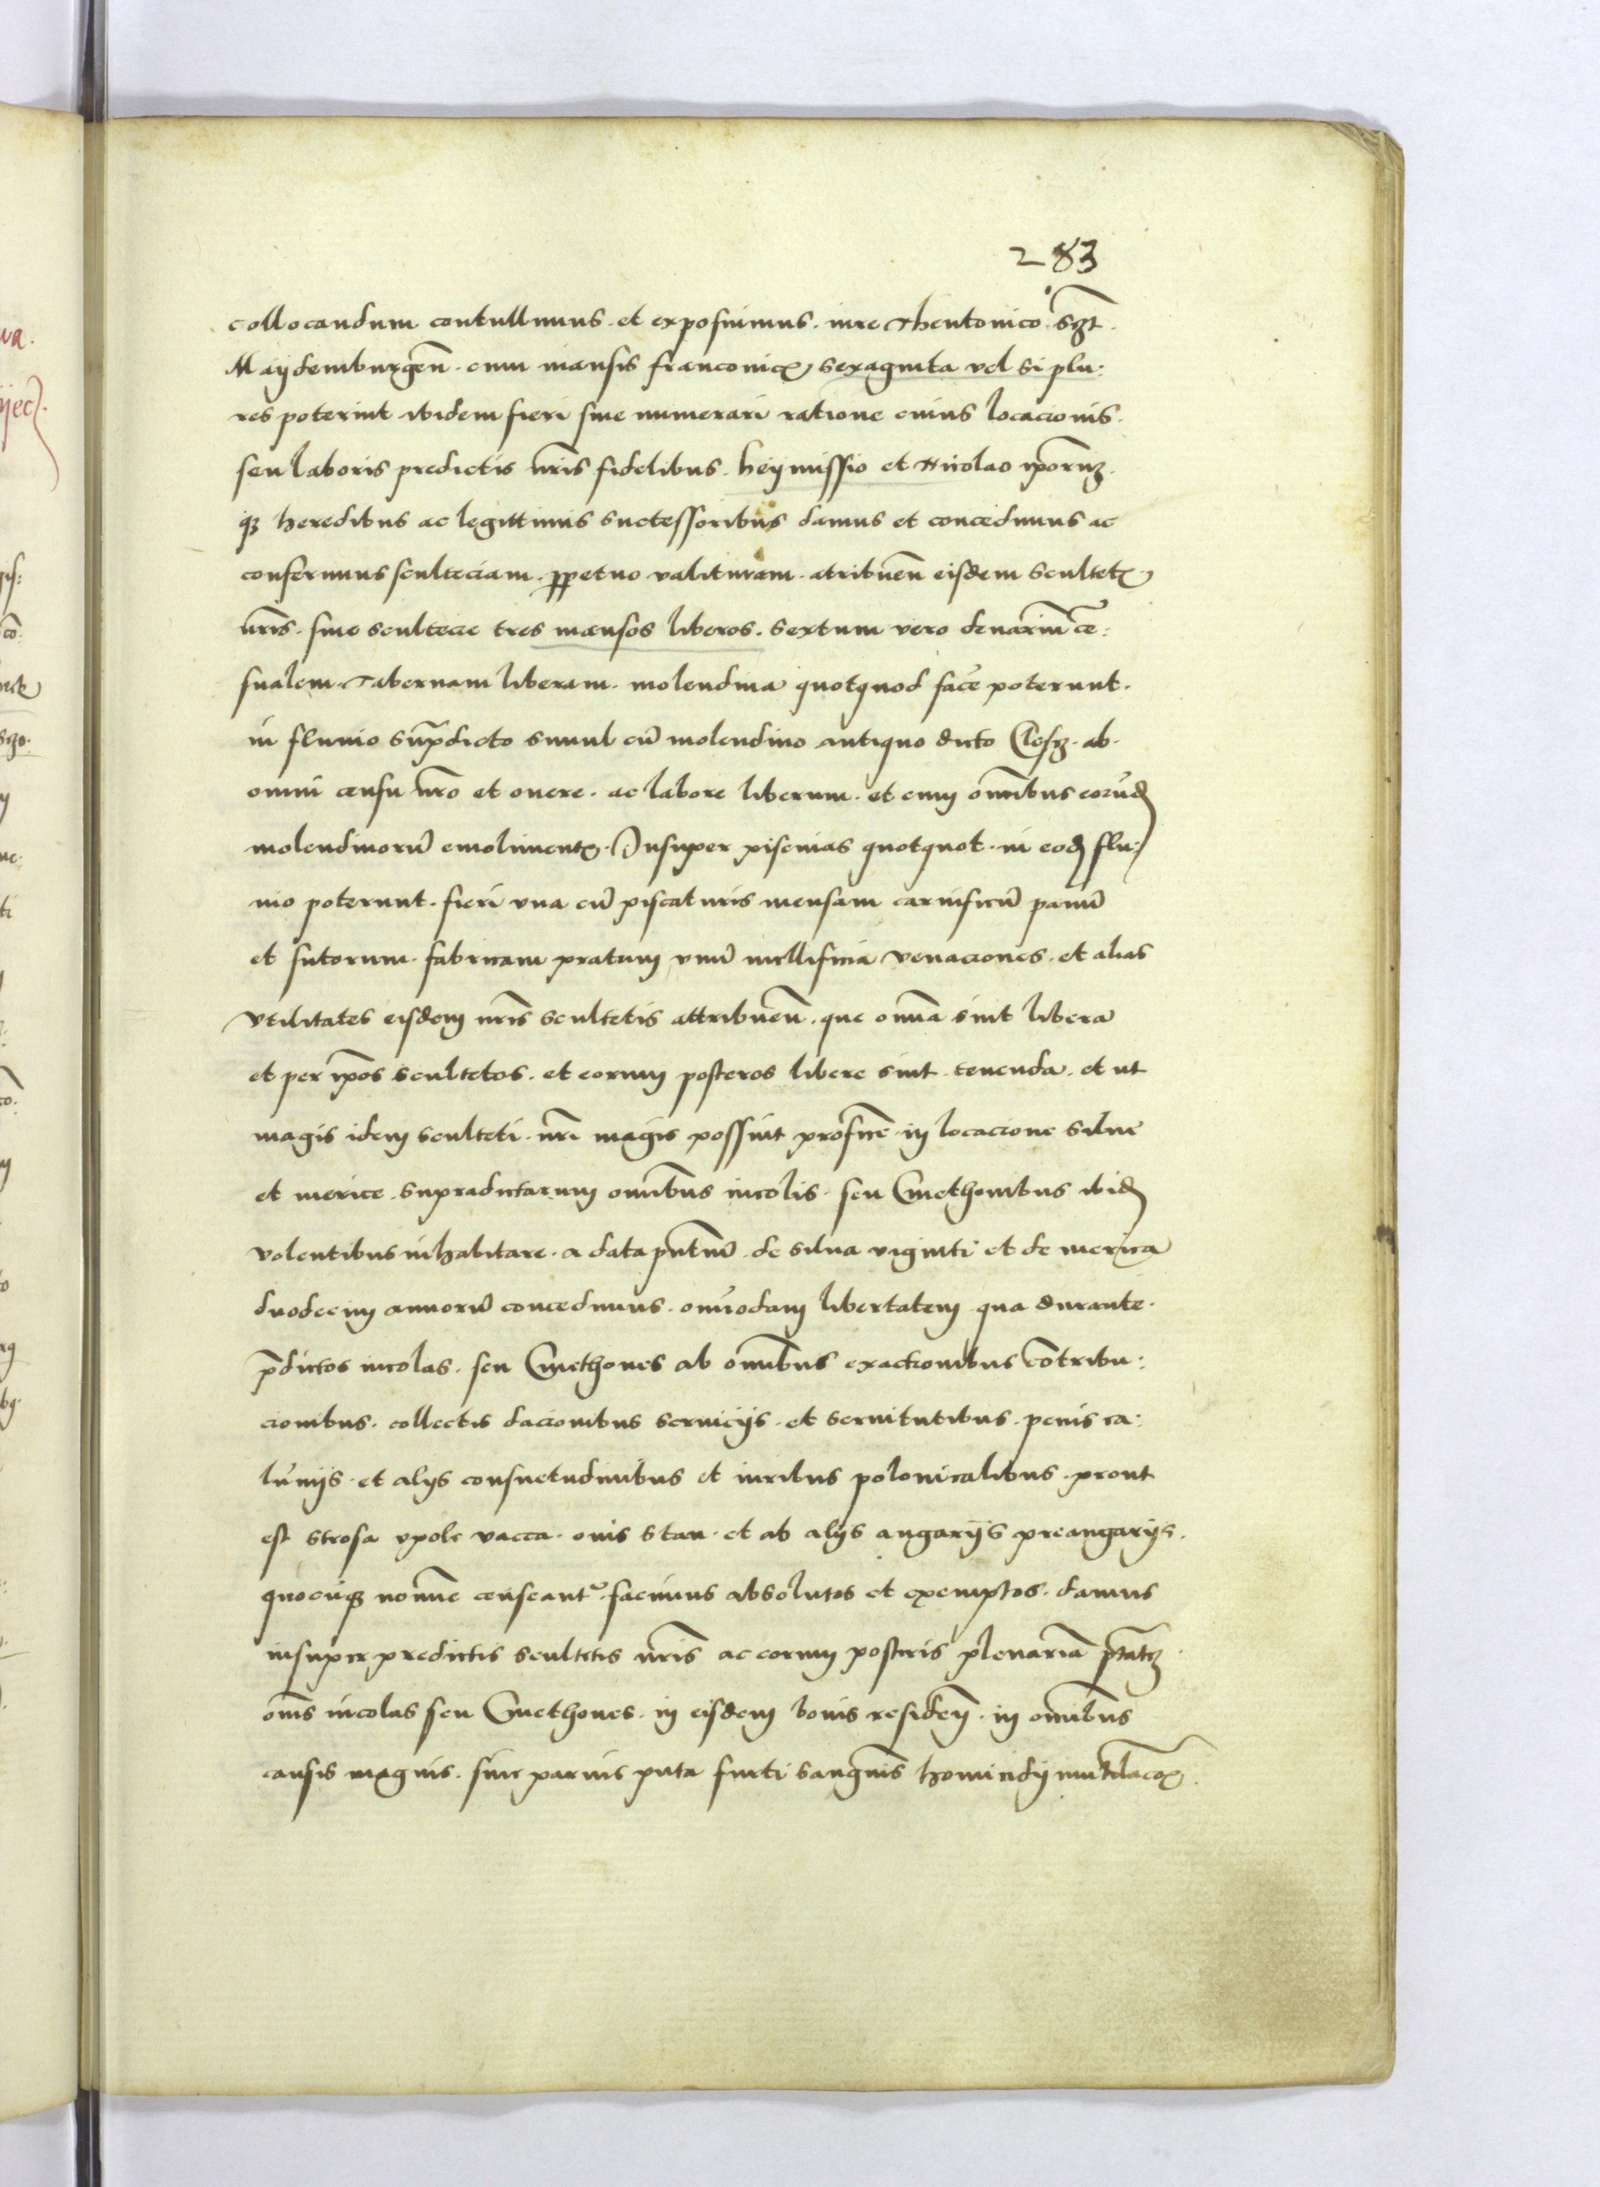 283
collocandum contullimus. et exposuimus. iure Theutonico. sz̄t.
Maydemburgeñ. cum mansis franconicꝭ, sexaginta vel si plu:
res poterint ibidem fieri siue numerari ratione cuius locacionis.
seu laboris predictis nr̄is fidelibus. heymissio et Nicolao ip̄orum
qꝫ heredibus ac legittimis successoribus damus et concedimus ac
conferimus sculteciam. ꝑpetuo valituram. atribueñ eisdem scultetꝭ.
nr̄is. siue scultecie tres mansos liberos. sextum vero denariū cē:
sualem. Tabernam liberam. molendina quotquod facē poterunt.
in fluuio sup̄dicto simul cū molendino antiquo dicto ab.
omni censu nr̄o et onere. ac labore liberum. et cum om̄ibus eorūd
molendinorū emolimentꝭ. Insuper piscinias quotquot. in eod flu:
uio poterunt. fieri vna cū piscaturis mensam carnificū panū
et sutorum. fabricam pratum vnū mellificia venaciones. et alias
vtilitates eisdem nr̄is scultetis attribueñ. que omnia sint libera
et per ip̄os scultetos. et eorum posteros libere sint. tenenda. et ut
magis idem sculteti. nr̄i magis possint proficē in locacione silue
et merice. supradictarum omībus incolis. seu Cmethonibus ibid
volentibus inhabitare. a data pn̄tiū. de silua viginti et de merica
duodecim annorū concedimus. omīodam libertatem qua durante.
p̄dictos incolas. seu Cmethones ab omībus exactionibus cōtribu:
cionibus. collectis dacionibus seruiciis. et seruitutibus. penis ca:
lūniis. et alijs consuetudinibus et iuribus polonicalibus. prout
est strosa vpole vacca. ouis stan. et ab alijs angarijs preangarijs.
quocūqꝫ nomīe censeant᷑. facimus absolutos et exemptos. damus
insuper predictis scultetis nr̄is ac eorum posteris plenariā
om̄s incolas seu Cmethones. in eisdem bonis resideñ. in omībus
causis magnis. siue paruis puta furti sanguīs homicidij